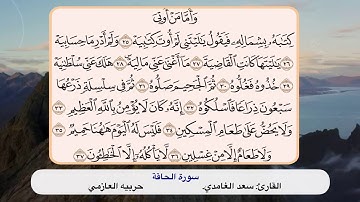 وَأَمَّا مَنْ أُوتِيَ
كِتَٰبَهُۥ بِشِمَالِهِۦ فَيَقُولُ يَٰلَيْتَنِي لَمْ أُوتَ كِتَٰبِيَهْ ٢٥ وَلَمْ أَدْرِ مَا حِسَابِيَهْ
٢٦ يَٰلَيْتَهَا كَانَتِ ٱلْقَاضِيَةَ ٢٧ مَآ أَغْنَىٰ عَنِّي مَالِيَهْۜ ٢٨ هَلَكَ عَنِّي سُلْطَٰنِيَهْ
٢٩ خُذُوهُ فَغُلُّوهُ ٣٠ ثُمَّ ٱلْجَحِيمَ صَلُّوهُ ٣١ ثُمَّ فِي سِلْسِلَةٍ ذَرْعُهَا
سَبْعُونَ ذِرَاعًا فَٱسْلُكُوهُ ٣٢ إِنَّهُۥ كَانَ لَا يُؤْمِنُ بِٱللَّهِ ٱلْعَظِيمِ ٣٣
وَلَا يَحُضُّ عَلَىٰ طَعَامِ ٱلْمِسْكِينِ ٣٤ فَلَيْسَ لَهُ ٱلْيَوْمَ هَٰهُنَا حَمِيمٌ ٣٥
وَلَا طَعَامٌ إِلَّا مِنْ غِسْلِينٍ ٣٦ لَّا يَأْكُلُهُۥٓ إِلَّا ٱلْخَٰطِـُٔونَ ٣٧
سورة الحاقة
القارئ: سعد الغامدي. حربيه العازمي